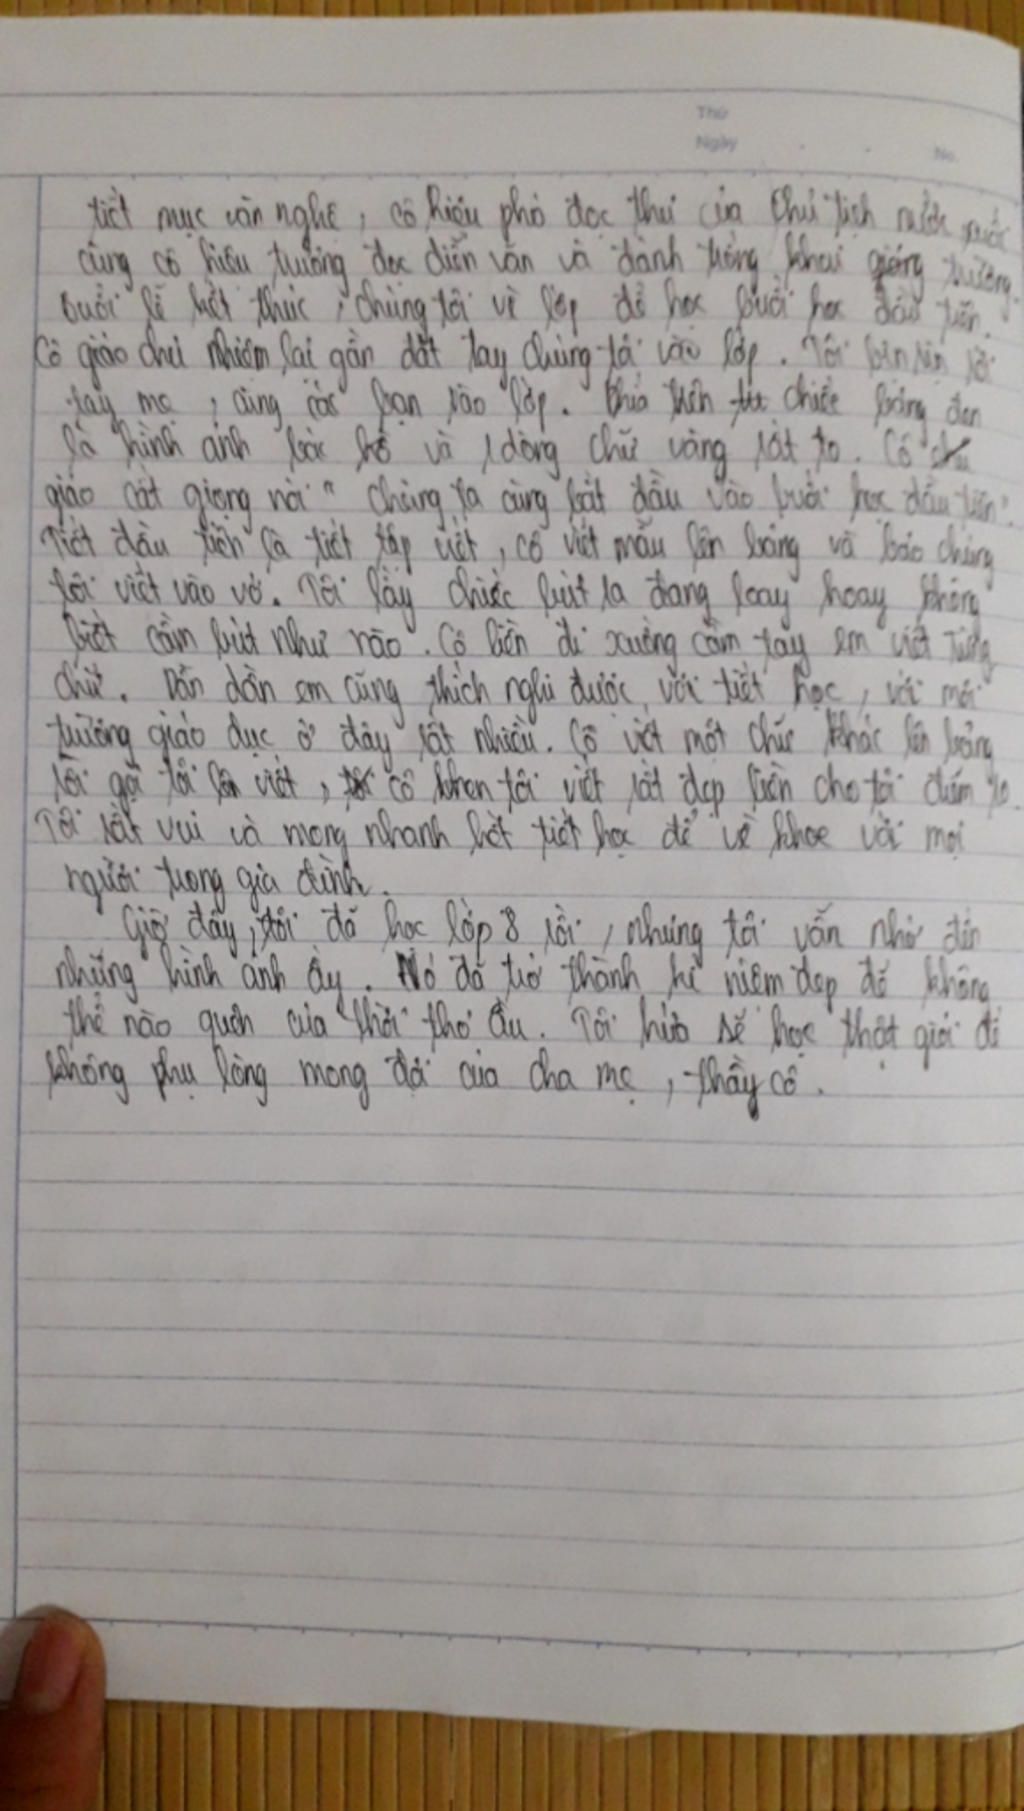 Thứ
Ngày
No.
tiết mục văn nghê, cô hiệu phó đọc thư của chủ tịch nước
cùng cô hiệu trưởng đọc diễn văn và đánh trống khai giảng trường.
Buổi lễ kết thúc, chúng tôi về lớp để học buổi học đầu tiên.
Cô giáo chủ nhiệm lại gần dắt tay chúng tôi vào lớp. Tôi rời
tay mẹ, cùng các bạn vào lớp. Phía trên chiếc bảng đen
là hình ảnh bác hồ và 1 dòng chữ vàng rất to. Cô
giáo cất giọng nói " chúng ta cùng bắt đầu vào buổi học đầu tiên".
Tiết đầu tiên là tiết tập viết, cô viết mẫu lên bảng và bảo chúng
tôi viết vào vở. Tôi lấy chiếc bút ra đang loay hoay không
biết cầm bút như nào. Cô liền đi xuống cầm tay em viết từng
chữ. Dần dần em cũng thích nghi được với tiết học, với môi
trường giáo dục ở đây rất nhiều. Cô viết một chữ khác lên bảng
rồi gọi tôi lên viết, cô khen tôi viết rất đẹp liền cho tôi điểm 10.
Tôi rất vui và mong nhanh hết tiết học để về khoe với mọi
người trong gia đình.
Giờ đây, tôi đã học lớp 8 rồi, nhưng tôi vẫn nhớ đến
những hình ảnh ấy. Nó đã trở thành kỉ niệm đẹp đẽ không
thể nào quên của thời thơ ấu. Tôi hứa sẽ học thật giỏi để
không phụ lòng mong đợi của cha mẹ, thầy cô.